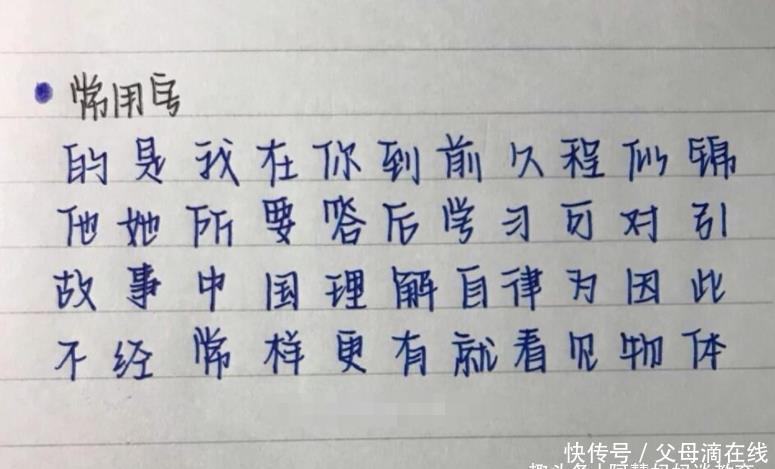 常用字
的是我在你到前久程似锦
他她所要答后学习可对引
故事中国理解自律为因此
不经常样更有就看见物体
快传号/父母滴在线